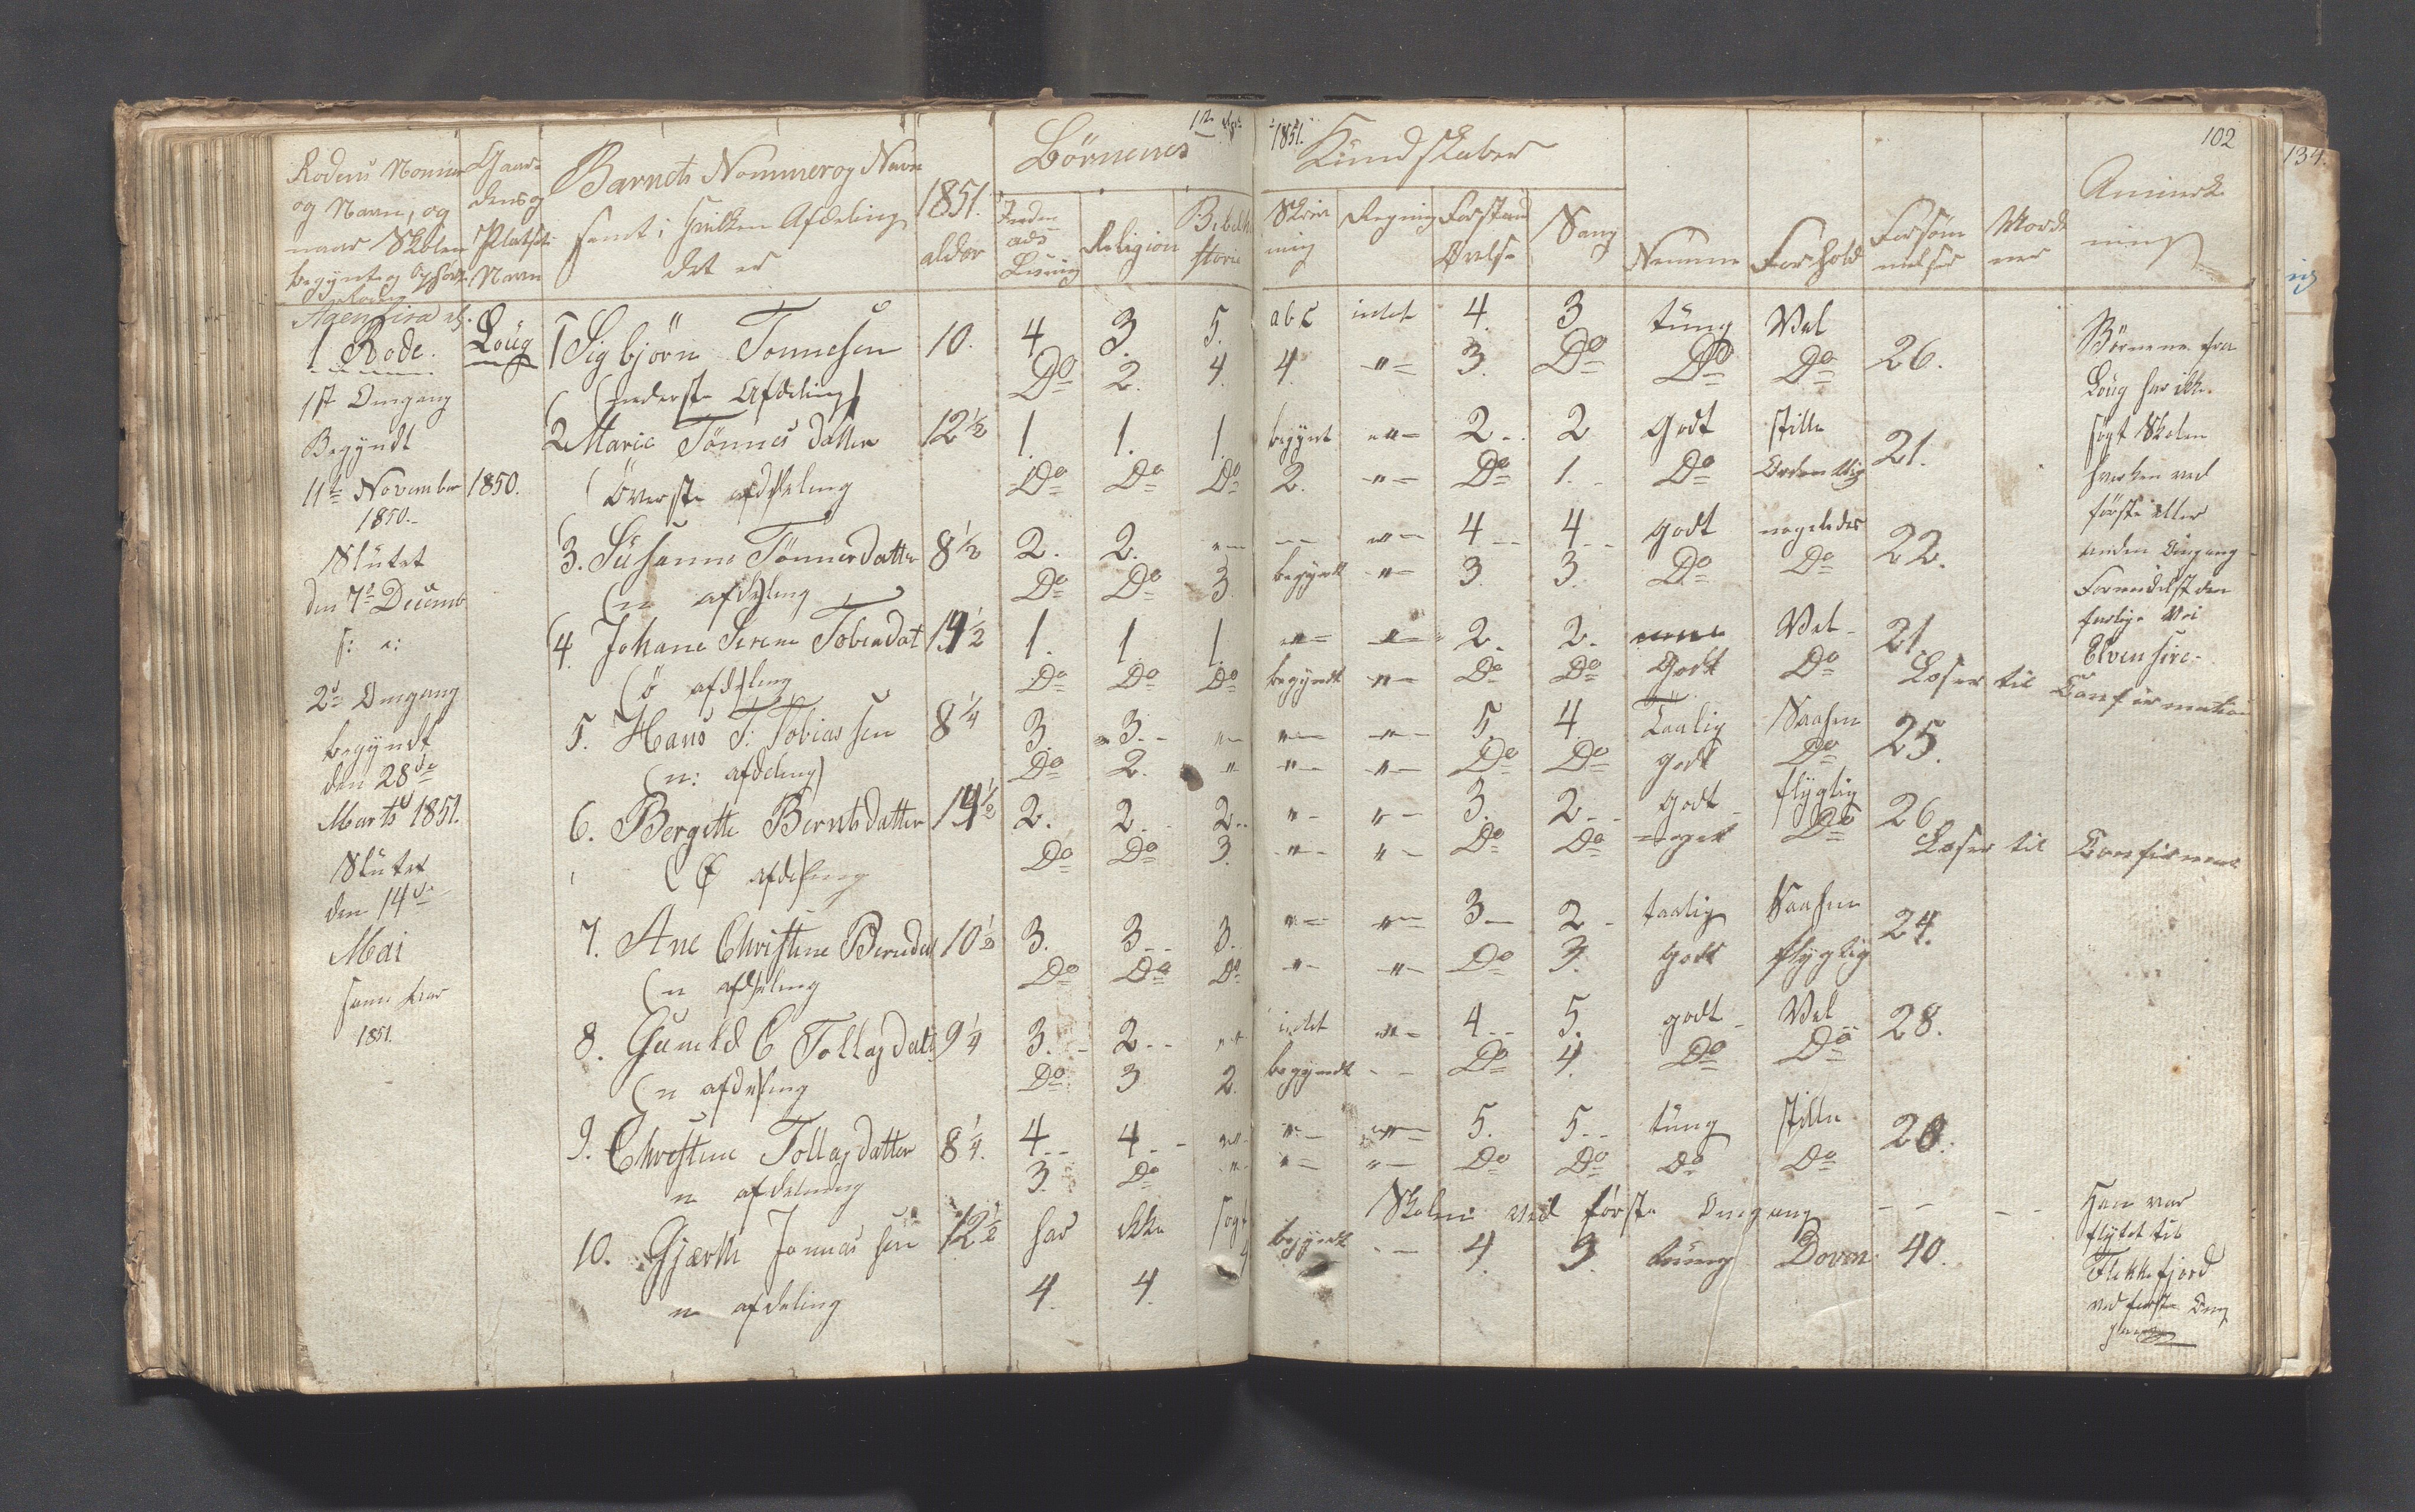 12 Sept. 1851. 102
134.
Rodens Nommer Gaar-
og Navn, og dens og
naar Skolen Platsets
begynte og Ophørte Navn
Barnets Nommer og Navn
samt i hvilken Afdeling
det er
1851.
alder
Börnenes Kundskaber
Inden
ads
Læsning
Religion
Bibelhi
storie
Skriv
ning
Regning
Forstands
Øvelse
Sang
Nemme
Forhold
Forsöm
melser
Anmerk
ning
1 Rode. Loüg 1 Sigbjörn Tonnesen 10. 4 3 5. abc intet 4. 3 tüng Vel
(nederste Afdeling) Do 2. 4. 4. " 3. Do Do Do 26.
1st Omgang
Begyndt
11te November 1850.
1850.
Slutet
den 7de Decemb
s: a:
2den Omgang
begyndt
den 28de
Marts 1851.
Slutet
den 14de
Mai
samme Aar
1851.
2 Marie Tönnes datter 12½ 1. 1. 1. begynt " 2 2 Godt stille
(Överste afdeling Do Do Do 2. " Do 1. Do Ordentlig 21.
3. Susanne Tönnesdatter 8½ 2. 2. " " " 4 4 godt nogeledes
(n afdeling Do Do 3. begyndt " 3 3. Do Do 22.
4. Johane Serine Tobiadat 14½ 1. 1. 1. " " 2. 2. Vel
(ö afdeling Do Do Do begyndt " Do Do Godt Do 21
Læser til Confirmation
5. Hans T. Tobiassen 8¼ 3. 3. " " " 5. 4. Taalig Saasom
(n: afdeling) Do 2. " " " Do Do godt Do 25.
6. Bergitte Berntsdatter 14½ 2. 2. 2. " " 3. 2. Godt flygtig
(Ø afdeling Do Do 3. " " Do Do Do 26
Læser til
7. Ane Christine Berndat 10½ 3. 3. 3. " " 3 2 taalig Saasom
(n afdeling Do Do Do " " Do 3. godt flygtig 24.
8. Gunild C Tollagdatt 9¼ 3. 2. " intet " 4 5. godt Vel
(n afdeling Do 3 2. begyndt Do 4. Do Do 28.
9. Christine Tollagdatter 8¼. 4 4 " " " 5. 5 tüng stille
n afdeling 3. Do " " " Do Do Do Do 20.
10. Gjærth Jonnas sen 12½ har ikke sögt Skolen ved første Omgang
n afdeling 4. 4. 4 begyndt 4. 3. tüng Doven 40.
Börnene fra
Loüg har ikke
sögt Skolen
hverken ved
förste eller
anden Omgang
Formedelst den
farlige Vei
han var
flytet til
Flekkefjord
ved første Omg